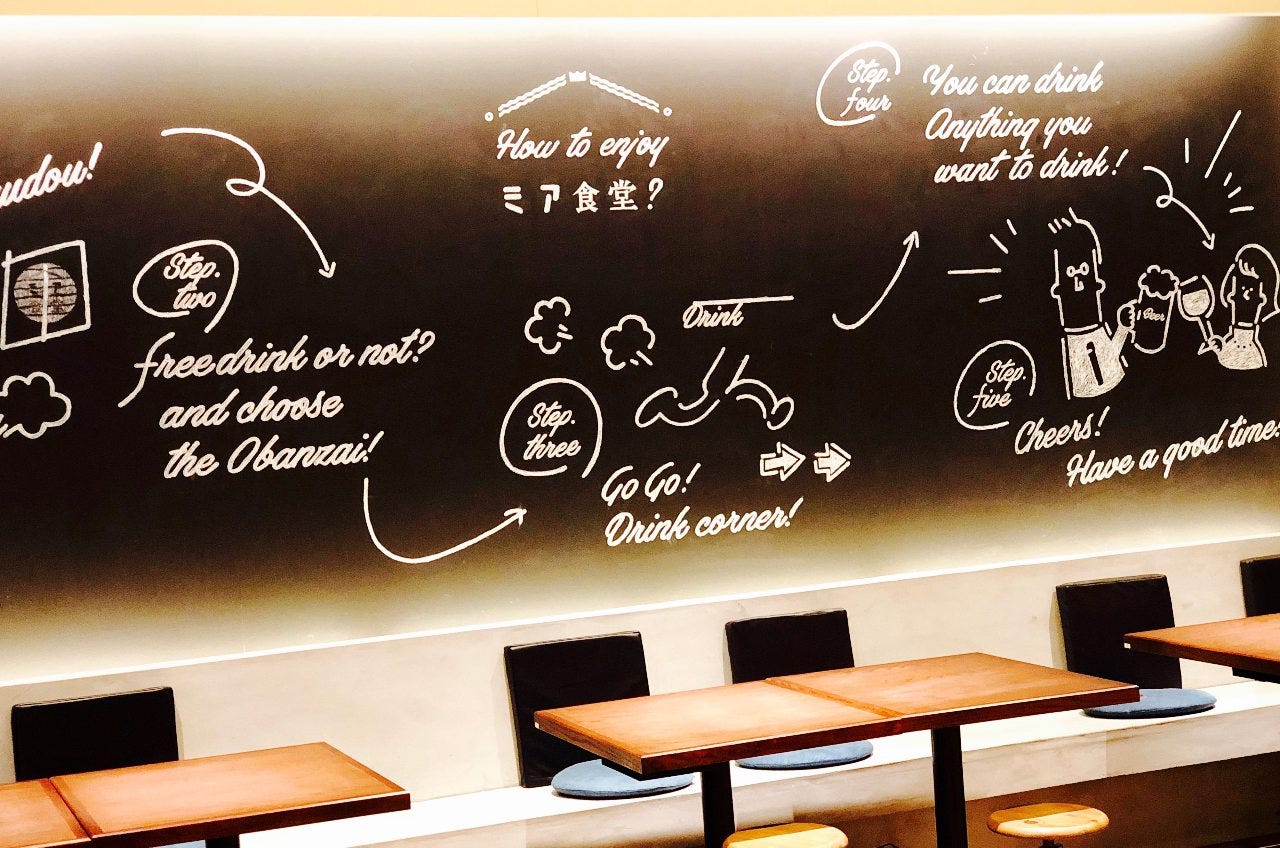 How to enjoy
ミア食堂?
udou!
Step.
two
free drink or not?
and choose
the Obanzai!
Step.
three
Drink
Go Go!
Drink corner!
Step.
four
You can drink
Anything you
want to drink!
Beer
Step.
five
Cheers!
Have a good time!